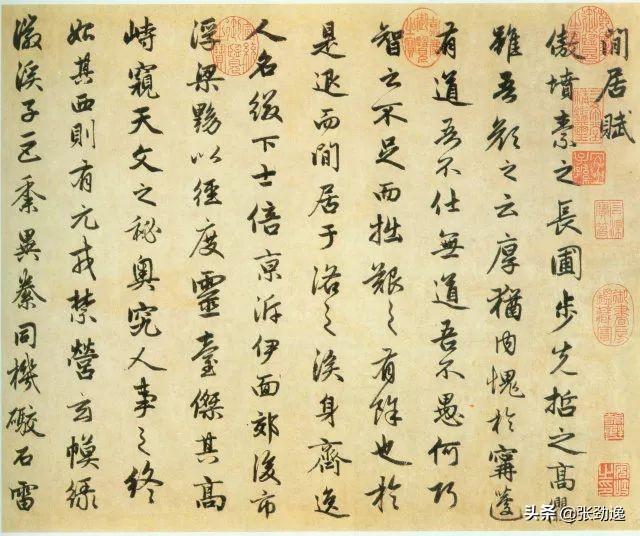 閒居賦
傲墳素之長圃步先哲之高衢
雖吾顏之云厚猶内愧於甯蘧
有道吾不仕無道吾不愚何巧
智之不足而拙艱之有餘也於
是退而閒居于洛之涘身齊逸
人名綴下士倍京泝伊面郊後市
浮梁黝以徑度靈臺傑其高
峙窺天文之祕奧究人事之終
始其西則有元戎禁營玄幙綠
徽溪子巨黍異絭同機礮石雷
头条 @张劲逸